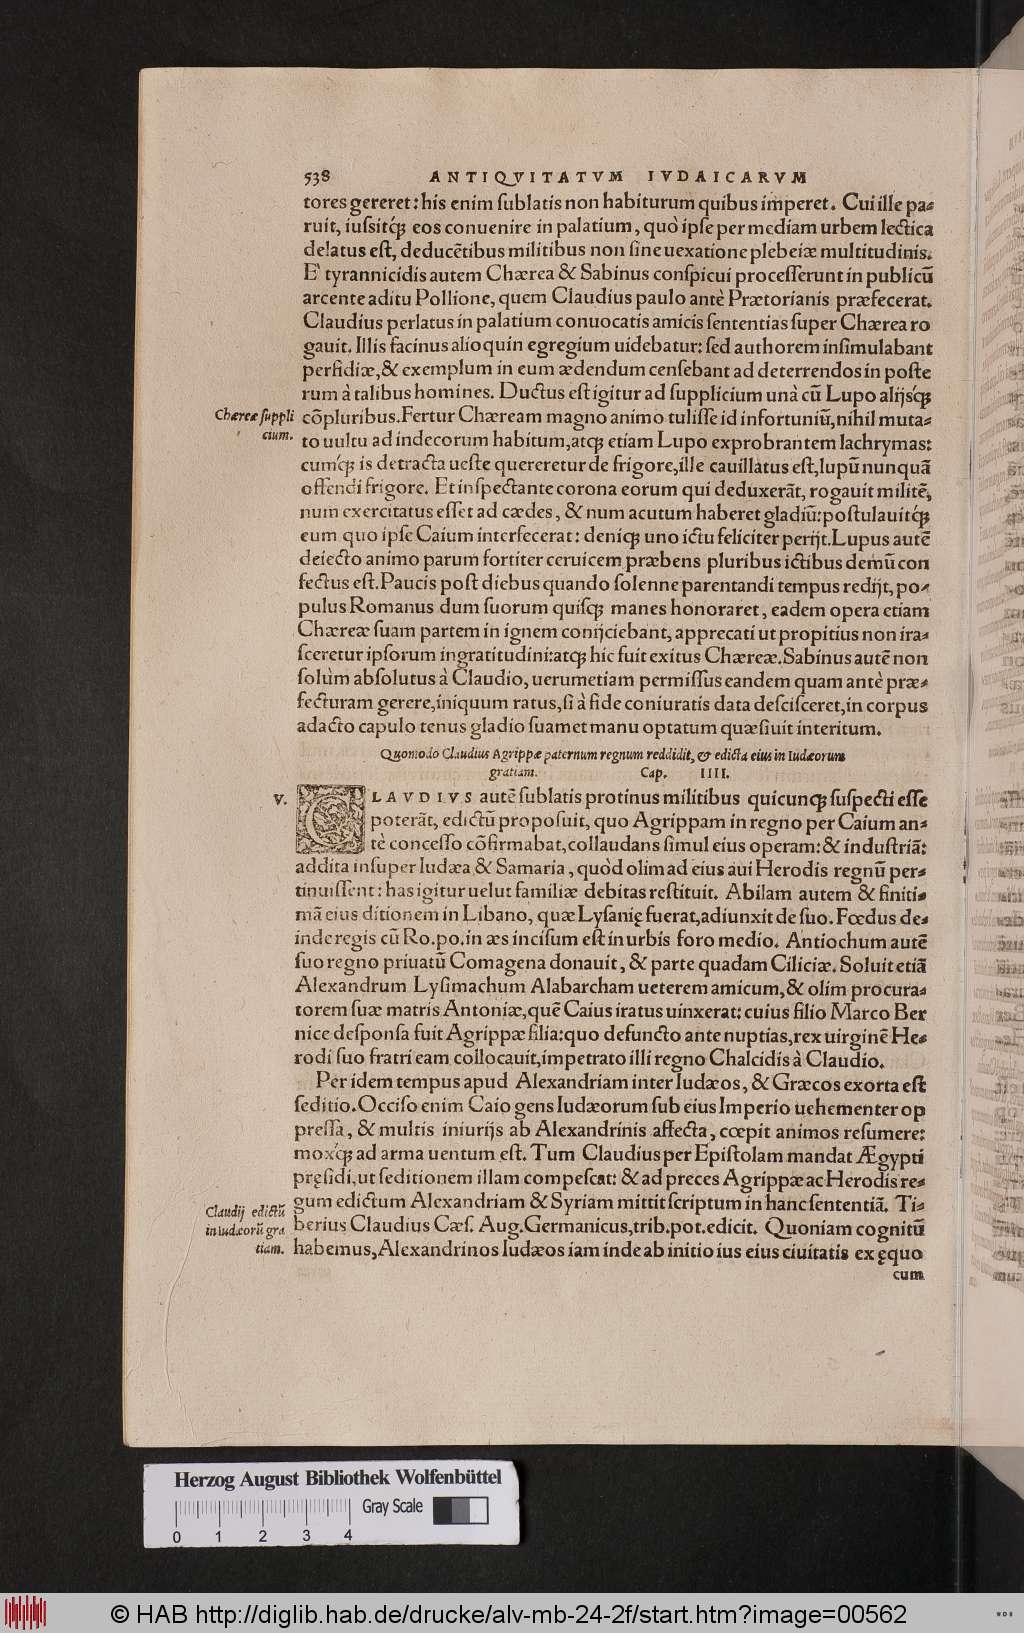 538 ANTIQVITATVM IVDAICARVM
tores gereret: his enim sublatis non habiturum quibus imperet. Cui ille pa-
ruit, iussitq́ꝫ eos conuenire in palatium, quò ipse per mediam urbem lectica
delatus est, deducẽtibus militibus non sine uexatione plebeiæ multitudinis.
E' tyrannicidis autem Chærea & Sabinus conspicui processerunt in publicũ
arcente aditu Pollione, quem Claudius paulo antè Prætorianis præfecerat.
Claudius perlatus in palatium conuocatis amicis sententias super Chærea ro
gauit. Illis facinus alioquin egregium uidebatur: sed authorem insimulabant
perfidiæ, & exemplum in eum ædendum censebant ad deterrendos in poste
rum à talibus homines. Ductus est igitur ad supplicium unà cũ Lupo alijsq́ꝫ
Chæreæ suppli
cium.
cõpluribus. Fertur Chæream magno animo tulisse id infortuniũ, nihil muta-
to uultu ad indecorum habitum, atqꝫ etiam Lupo exprobrantem lachrymas:
cumq́ꝫ is detracta ueste quereretur de frigore, ille cauillatus est, lupũ nunquã
offendi frigore. Et inspectante corona eorum qui deduxerãt, rogauit militẽ,
num exercitatus esset ad cædes, & num acutum haberet gladiũ: postulauitq́ꝫ
eum quo ipse Caium interfecerat: deniqꝫ uno ictu feliciter perijt. Lupus autẽ
deiecto animo parum fortiter ceruicem præbens pluribus ictibus demũ con
fectus est. Paucis post diebus quando solenne parentandi tempus redijt, po-
pulus Romanus dum suorum quisqꝫ manes honoraret, eadem opera etiam
Chæreæ suam partem in ignem conijciebant, apprecati ut propitius non ira-
sceretur ipsorum ingratitudini: atqꝫ hic fuit exitus Chæreæ. Sabinus autẽ non
solùm absolutus à Claudio, uerumetiam permissus eandem quam antè præ-
fecturam gerere, iniquum ratus, si à fide coniuratis data descisceret, in corpus
adacto capulo tenus gladio suamet manu optatum quæsiuit interitum.
Quomodo Claudius Agrippæ paternum regnum reddidit, & edicta eius in Iudæorum
gratiam. Cap. IIII.
V.
CLAVDIVS autẽ sublatis protinus militibus quicunqꝫ suspecti esse
poterãt, edictũ proposuit, quo Agrippam in regno per Caium an-
tè concesso cõfirmabat, collaudans simul eius operam: & industriã:
addita insuper Iudæa & Samaria, quòd olim ad eius aui Herodis regnũ per-
tinuissent: has igitur uelut familiæ debitas restituit. Abilam autem & finiti-
mã eius ditionem in Libano, quæ Lysanię fuerat, adiunxit de suo. Fœdus de-
inde regis cũ Ro. po. in æs incisum est in urbis foro medio. Antiochum autẽ
suo regno priuatũ Comagena donauit, & parte quadam Ciliciæ. Soluit etiã
Alexandrum Lysimachum Alabarcham ueterem amicum, & olim procura-
torem suæ matris Antoniæ, quẽ Caius iratus uinxerat: cuius filio Marco Ber
nice desponsa fuit Agrippæ filia: quo defuncto ante nuptias, rex uirginẽ He-
rodi suo fratri eam collocauit, impetrato illi regno Chalcidis à Claudio.
Per idem tempus apud Alexandriam inter Iudæos, & Græcos exorta est
seditio. Occiso enim Caio gens Iudæorum sub eius Imperio uehementer op
pressa, & multis iniurijs ab Alexandrinis affecta, cœpit animos resumere:
moxq́ꝫ ad arma uentum est. Tum Claudius per Epistolam mandat Ægypti
pręsidi, ut seditionem illam compescat: & ad preces Agrippæ ac Herodis re-
gum edictum Alexandriam & Syriam mittit scriptum in hanc sententiã. Ti-
Claudij edictũ
in Iudæorũ gra
tiam.
berius Claudius Cæs. Aug. Germanicus, trib. pot. edicit. Quoniam cognitũ
habemus, Alexandrinos Iudæos iam inde ab initio ius eius ciuitatis ex ęquo
cum
Herzog August Bibliothek Wolfenbüttel
Gray Scale
0 1 2 3 4
© HAB http://diglib.hab.de/drucke/alv-mb-24-2f/start.htm?image=00562